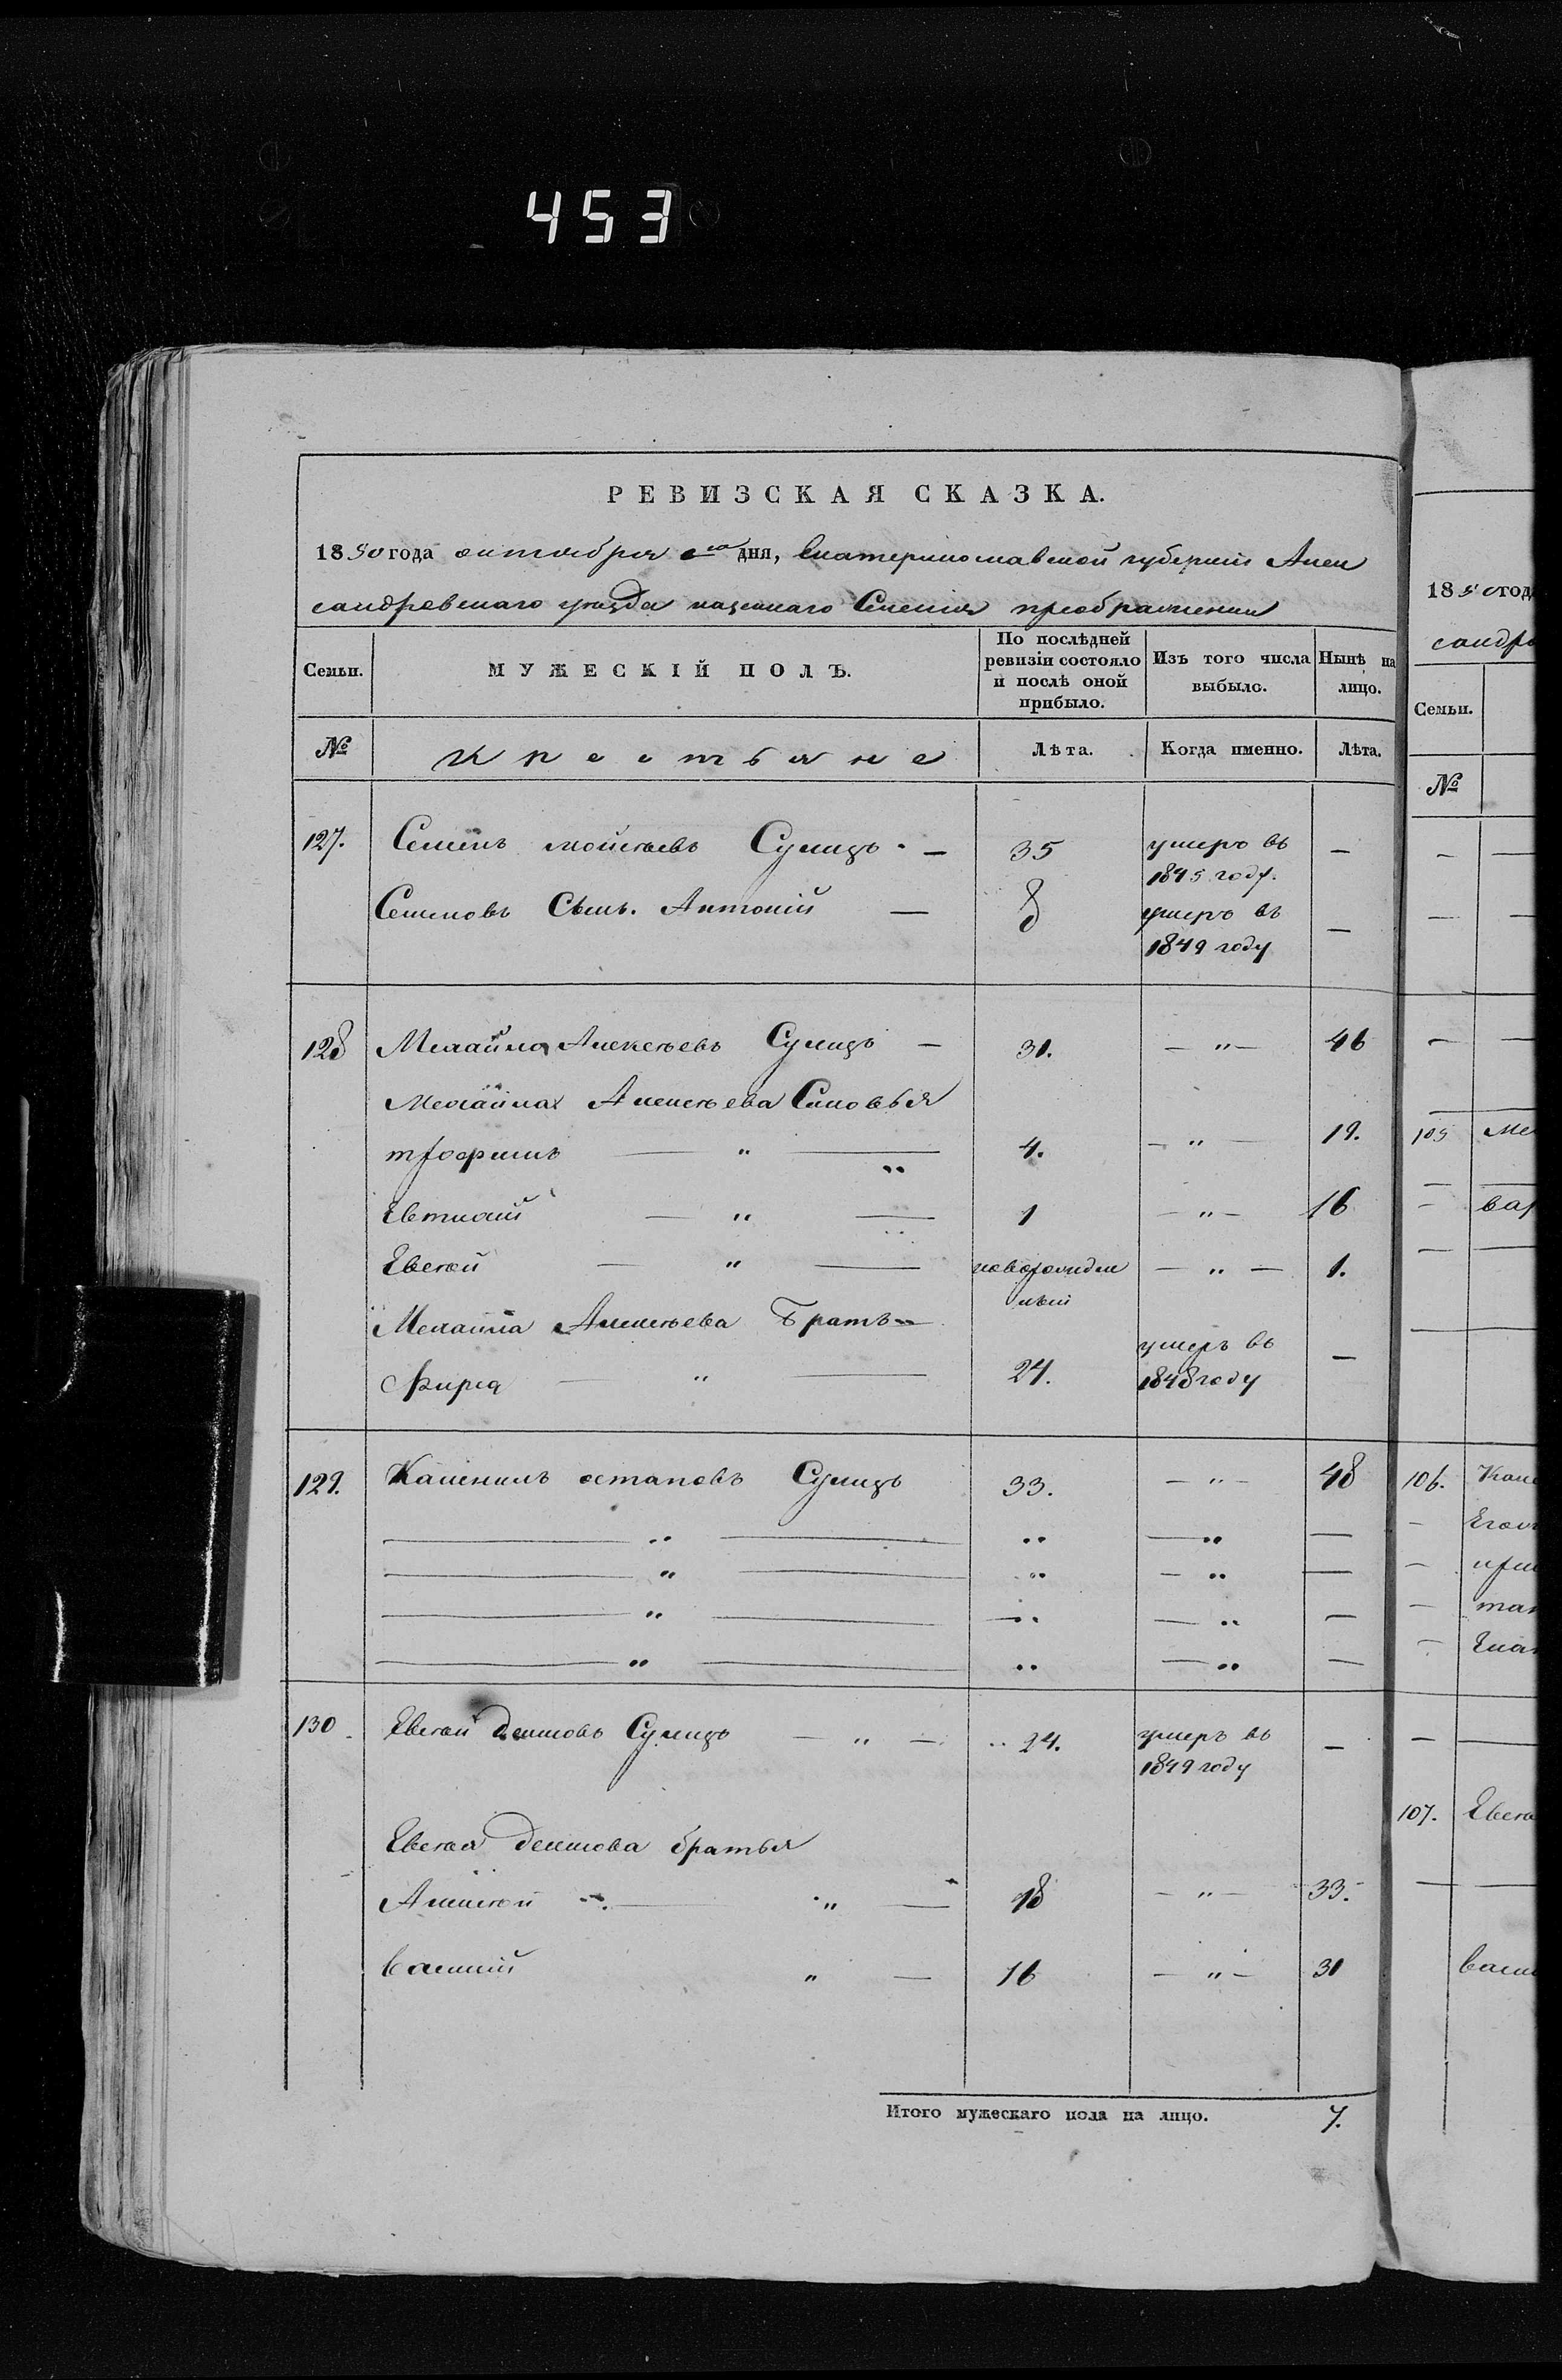 453
РЕВИЗСКАЯ СКАЗКА.
1850 года октября го дня, Екатеринославской губернии Алек
сандровскаго уезда казеннаго Селения преображенки
Семьи.
МУЖЕСКІЙ ПОЛЪ.
По послѣдней ревизіи состояло и послѣ оной прибыло.
Изъ того числа выбыло.
Нынѣ на лицо.
№
Крестьяне
Лѣта.
Когда именно.
Лѣта.
127. Семенъ мойсѣевъ Сулицъ. — 35 умеръ въ 1845 году. —
Семеновъ Сынъ. Антоній — 8 умеръ въ 1849 году —
128 Михайла Алексѣевъ Сулицъ — 31. — " — 46
Михайла Алексѣева Синовья
трофимъ — " — 4. — " — 19.
Евтихій — " — 1 — " — 16
Евсѣй — " — новорожден ный — " — 1.
Михайла Алексѣева Братъ
Фирсъ — " — 24. умеръ въ 1848 году —
129. остаповъ Сулицъ 33. — " — 48
— " — " — " —
— " — " — " —
— " — " — " —
— " — " — " —
130 Евсѣй Демидовъ Сулицъ — " — 24. умеръ въ 1849 году —
Евсѣя братья
Алексѣй — " — 18 — " — 33.
василий " — 16 — " — 31
Итого мужескаго пола на лицо. 7.
1850 год
сандро
Семьи.
№
105 Ме
вар
106.
107. Евсѣ
васи